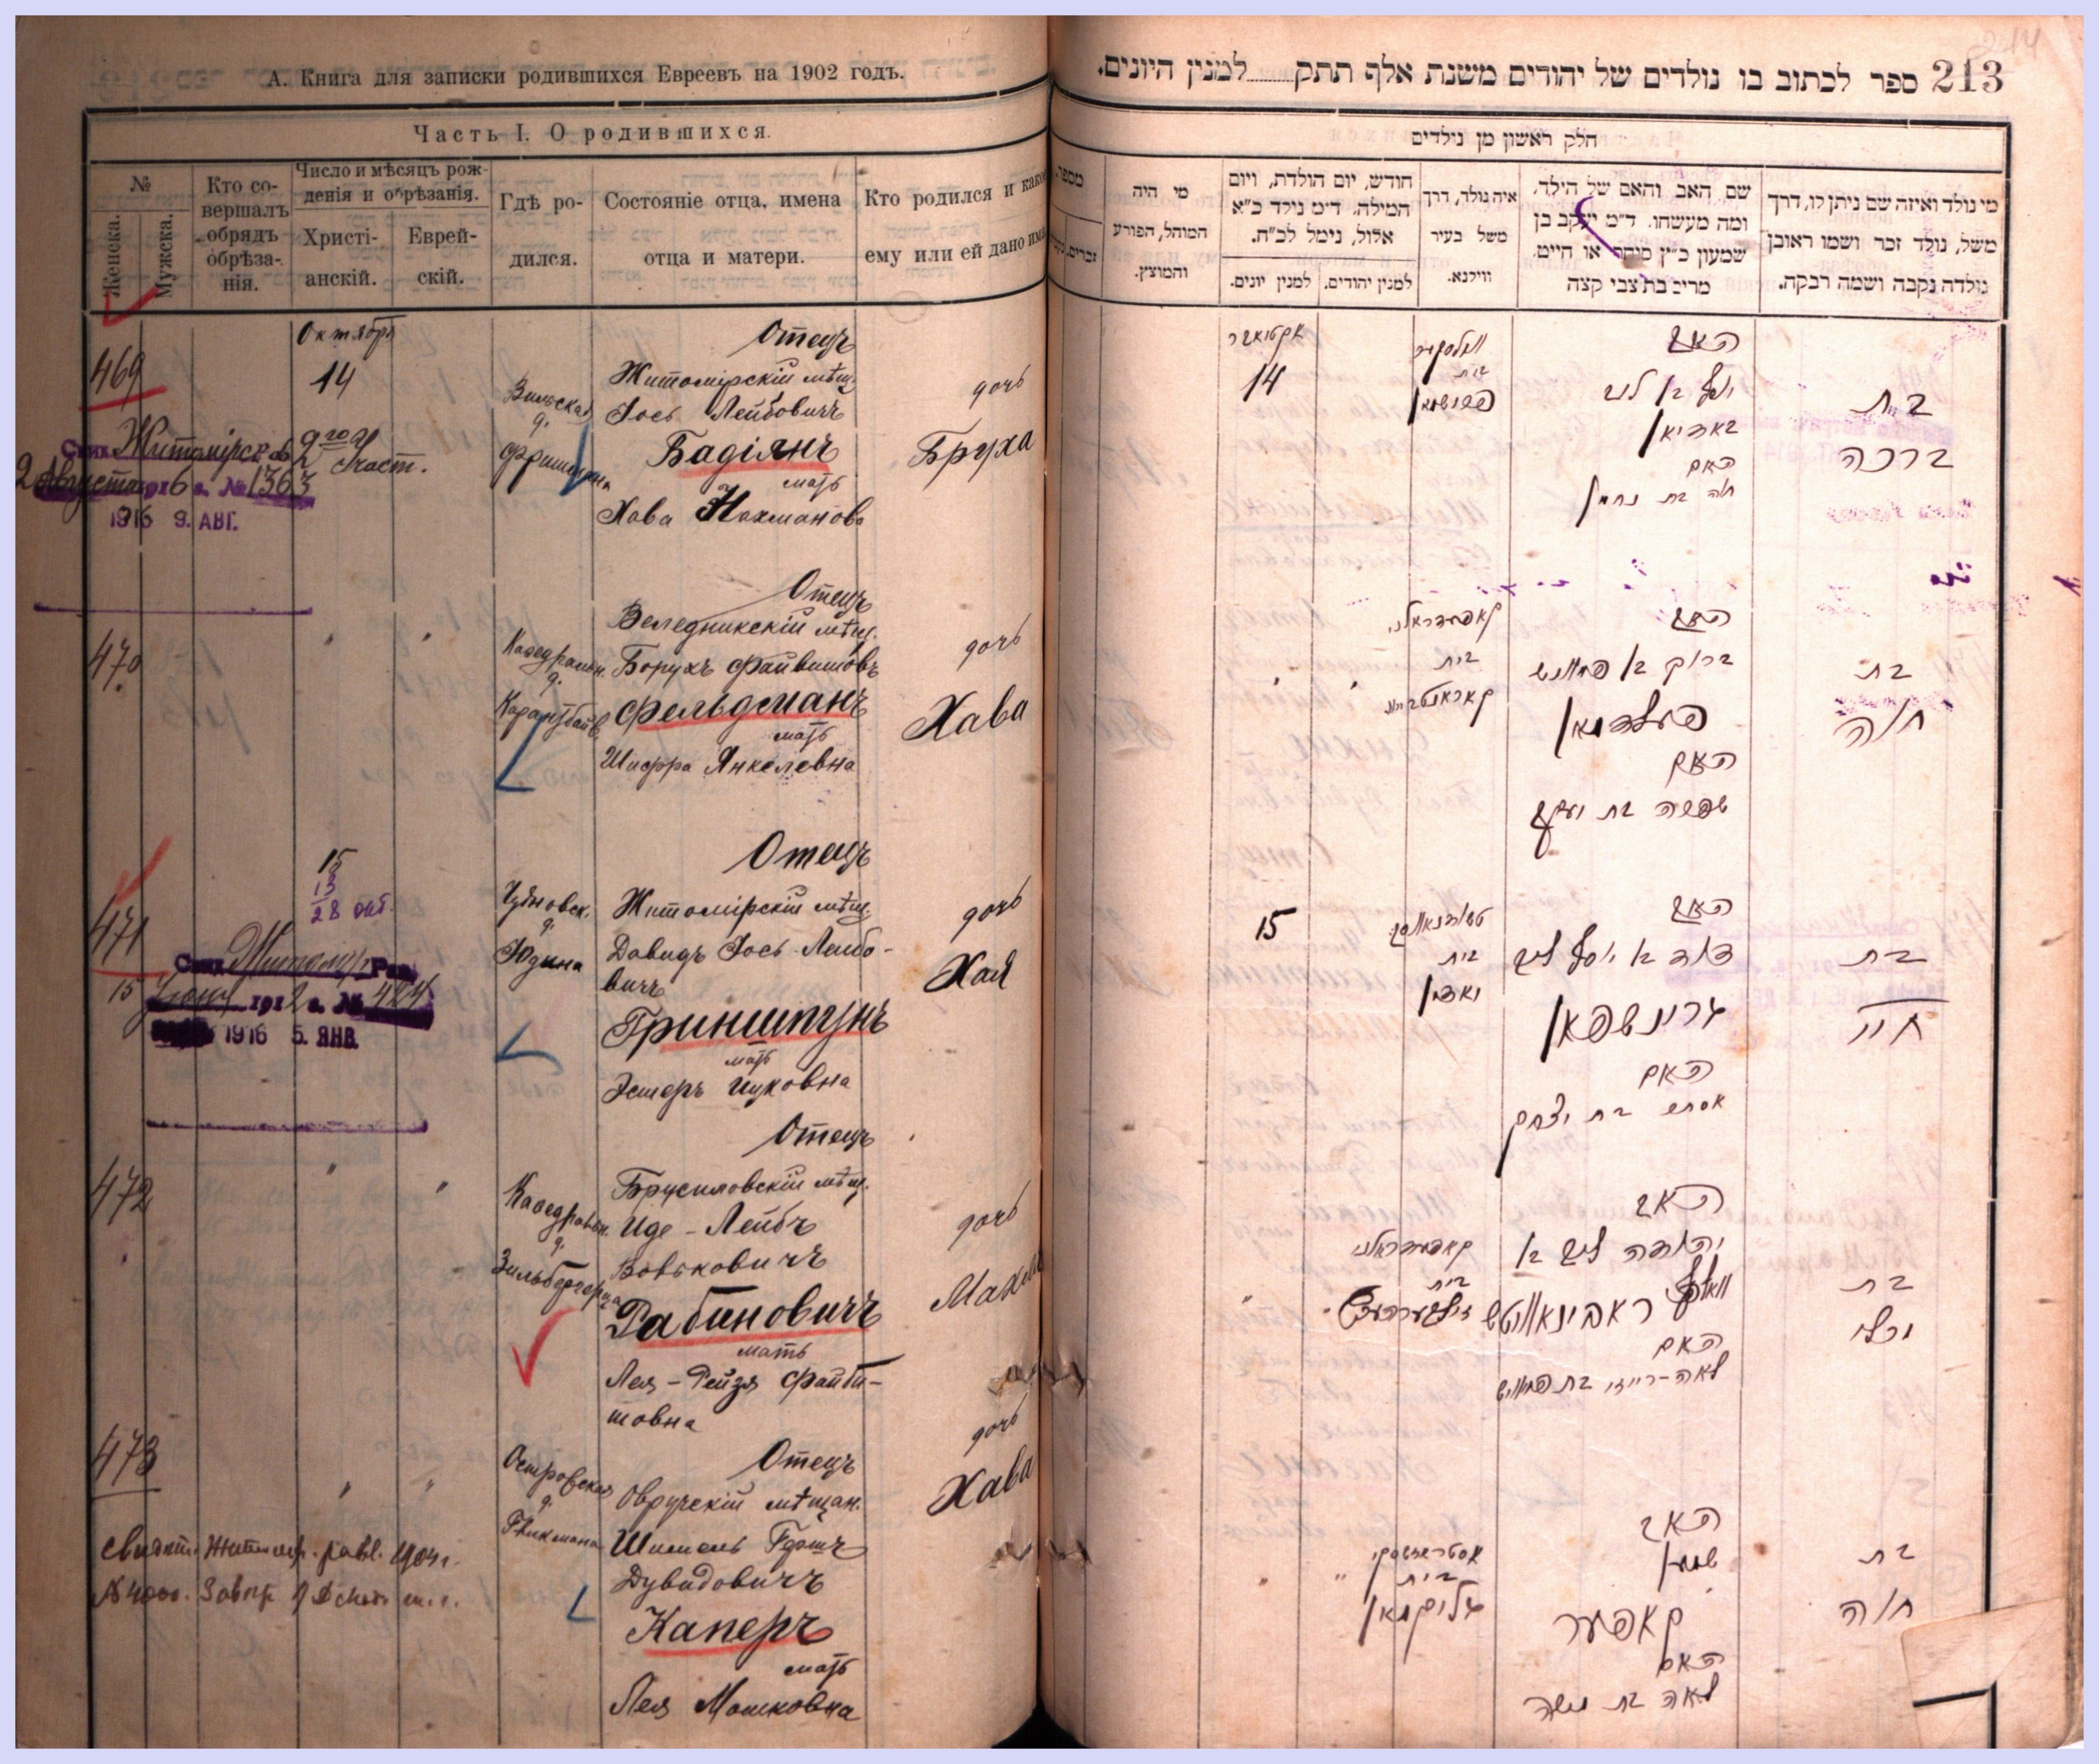 А. Книга для записки родившихся Евреевъ на 1902 годъ.
Часть I. О родившихся.
№
Женска.
Мужска.
Кто со-
вершалъ
обрядъ
обрѣза-
нія.
Число и мѣсяцъ рож-
денія и обрѣзанія.
Христі-
анскій.
Еврей-
скій.
Гдѣ ро-
дился.
Состояніе отца, имена
отца и матери.
Кто родился и како
ему или ей дано имя
469
Октября
14
2го участ.
Вильская
д.
Отецъ
Житомірскій мѣщ.
Іось Лейбовичъ
Бадіянъ
мать
Хава Нахмановa
дочь
Бруха
Житомірск
2 Августа 1916 г. № 1363
1916 9. АВГ.
470
Кафедральн.
д.
Отецъ
Веледникскій мѣщ.
Борухъ Файвишовъ
Фельдманъ
мать
Шифра Янкелевна
дочь
Хава
471
15
15
28 окт.
Чудновск.
д.
Юдина
Отецъ
Житомірскій мѣщ.
Давидъ Іось-Лейбо-
вичъ
Гриншпунъ
мать
Эстеръ Ицковна
дочь
Хая
Житомир
15 1912 г. № 424
1916 5. ЯНВ.
472
Кафедральн.
д.
Зильберберга
Отецъ
Брусиловскій мѣщ.
Иде-Лейбъ
Вовковичъ
Рабиновичъ
мать
Лея-Рейзя Файви-
шовна
дочь
473
Островская
д.
Гликмана
Отецъ
Овручскій мѣщан.
Шимель Гершъ
Дувидовичъ
Каперъ
мать
Лея Мошковна
дочь
Хава
Свидѣт. Житомир. равв. 1904 г.
№ 4000.
213 ספר לכתוב בו נולדים של יהודים משנת אלף תתק למנין היונים.
חלק ראשון מן נולדים
מספר.
זכרים.
מי היה
המוהל, הפורע
והמוצץ.
חודש, יום הולדת, ויום
המילה. ד״מ נולד כ״א
אלול, נימל לכ״ח.
למנין יונים.
למנין יהודים.
איה נולד, דרך
משל בעיר
ווילנא.
שם האב והאם של הילד,
ומה מעשהו. ד״מ יעקב בן
שמעון כ״ץ סוחר או חייט
מרים בת צבי קצה
מי נולד ואיזה שם ניתן לו, דרך
משל, נולד זכר ושמו ראובן
נולדה נקבה ושמה רבקה.
אקטיאבר
14
בית
האב
יוסף בן ליב
באדיאן
האם
חוה בת נחמן
בת
ברכה
קאפעדראלני
בית
האב
ברוך בן פייוויש
פעלדמאן
האם
שפרה בת יעקב
בת
חוה
15
בית
יודין
האב
דוד בן יוסף ליב
גרינשפאן
האם
אסתר בת יצחק
בת
חיי
קאפעדראלני
בית
זילבערבערג
האב
יהודה ליב בן
וואלף ראבינאוויטש
האם
לאה-רייזי בת פייוויש
בת
בית
גליקמאן
האב
שמעון
קאפער
האם
לאה בת משה
בת
חוה